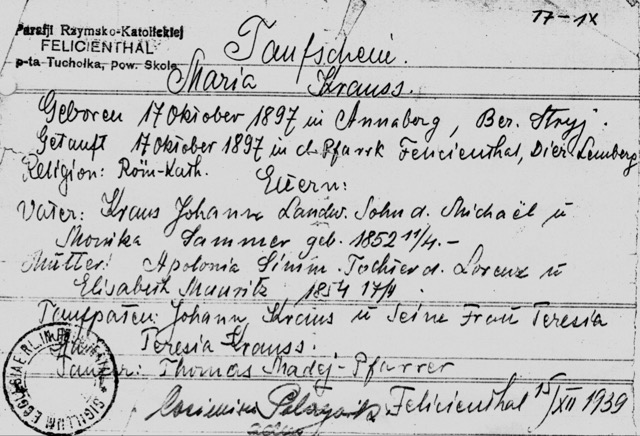 17-IX
Parafji Rzymsko-Katolickiej
FELICIENTHAL
p-ta Tucholka, pow. Skole
Taufschein.
Maria Krauss.
Geboren 17 Oktober 1897 in Annaberg, Ber. Stryj.
Getauft 17 Oktober 1897 in d. Pfarrk Felicienthal, Diez Lemberg
Religion: Röm-Kath.
Eltern:
Vater: Kraus Johann Landw. Sohn d. Michaël u
Monika Sammer geb. 1852 11/4.-
Mutter: Apolonia Simm. Tochter d. Lorenz u
Elisabeth Mauritz 1854 17/4
Taufpaten: Johann Kraus u Seine Frau Teresia
Teresia Krauss.
Taufer: Thomas Madej-Pfarrer
Felicienthal 15/XII 1939
SIGILLUM ECCLESIAE